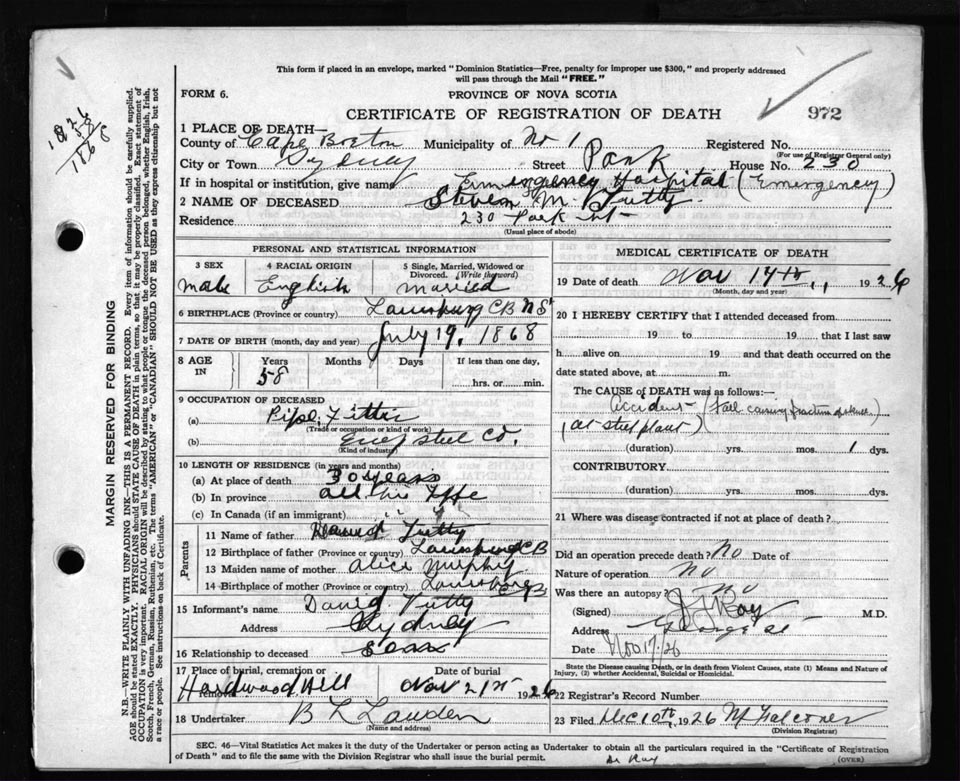 This form if placed in an envelope, marked "Dominion Statistics—Free, penalty for improper use $300," and properly addressed
will pass through the Mail "FREE."
FORM 6.
PROVINCE OF NOVA SCOTIA
CERTIFICATE OF REGISTRATION OF DEATH
972
1926
58
1868
1 PLACE OF DEATH—
County of Cape Breton Municipality of No 1 Registered No.
(For use of Registrar General only)
City or Town Sydney Street Park House No. 230
If in hospital or institution, give name Emergency Hospital (Emergency)
2 NAME OF DECEASED Steven M. Tutty
Residence 230 Park St
(Usual place of abode)
PERSONAL AND STATISTICAL INFORMATION
3 SEX
male
4 RACIAL ORIGIN
English
5 Single, Married, Widowed or
Divorced. (Write the word)
married
6 BIRTHPLACE (Province or country) Louisburg CB NS
7 DATE OF BIRTH (month, day and year) July 19, 1868
8 AGE
IN
Years
58
Months
Days
If less than one day,
hrs. or min.
9 OCCUPATION OF DECEASED
(a) Pipe Fitter
(Trade or occupation or kind of work)
(b) steel Co.
(Kind of industry)
10 LENGTH OF RESIDENCE (in years and months)
(a) At place of death 30 years
(b) In province all his life
(c) In Canada (if an immigrant)
Parents
11 Name of father David Tutty
12 Birthplace of father (Province or country) Louisburg CB
13 Maiden name of mother Alice Murphy
14 Birthplace of mother (Province or country) Louisburg CB
15 Informant's name David Tutty
Address Sydney
16 Relationship to deceased son
17 Place of burial, cremation or
Hardwood Hill
Date of burial
Nov 21st 1926
18 Undertaker B L Lowden
(Name and address)
MEDICAL CERTIFICATE OF DEATH
19 Date of death Nov 14th 1926
(Month, day and year)
20 I HEREBY CERTIFY that I attended deceased from
19 to 19 that I last saw
h alive on 19 and that death occurred on the
date stated above, at m.
The CAUSE of DEATH was as follows:—
accident (fall causing fracture of )
(at steel plant)
(duration) yrs. mos. 1 dys.
CONTRIBUTORY
(duration) yrs. mos. dys.
21 Where was disease contracted if not at place of death?
Did an operation precede death? No Date of
Nature of operation No
Was there an autopsy? No
(Signed) Roy M.D.
Address George St
Date Nov 17-26
State the Disease causing Death, or in death from Violent Causes, state (1) Means and Nature of
Injury, (2) whether Accidental, Suicidal or Homicidal.
22 Registrar's Record Number
23 Filed Dec 10th, 1926 M Falconer
(Division Registrar)
SEC. 46—Vital Statistics Act makes it the duty of the Undertaker or person acting as Undertaker to obtain all the particulars required in the "Certificate of Registration
of Death" and to file the same with the Division Registrar who shall issue the burial permit.
Dr Roy
(OVER)
MARGIN RESERVED FOR BINDING
N.B.—WRITE PLAINLY WITH UNFADING INK—THIS IS A PERMANENT RECORD. Every item of information should be carefully supplied.
AGE should be stated EXACTLY. PHYSICIANS should STATE CAUSE OF DEATH in plain terms, so that it may be properly classified. Exact statement of
OCCUPATION is very important. RACIAL ORIGIN will be described by stating to what people or tongue the deceased person belonged, whether English, Irish,
Scotch, French, German, Russian, Ruthenian, etc. The terms "AMERICAN" or "CANADIAN" SHOULD NOT BE USED as they express citizenship but not
a race or people. See instructions on back of Certificate.